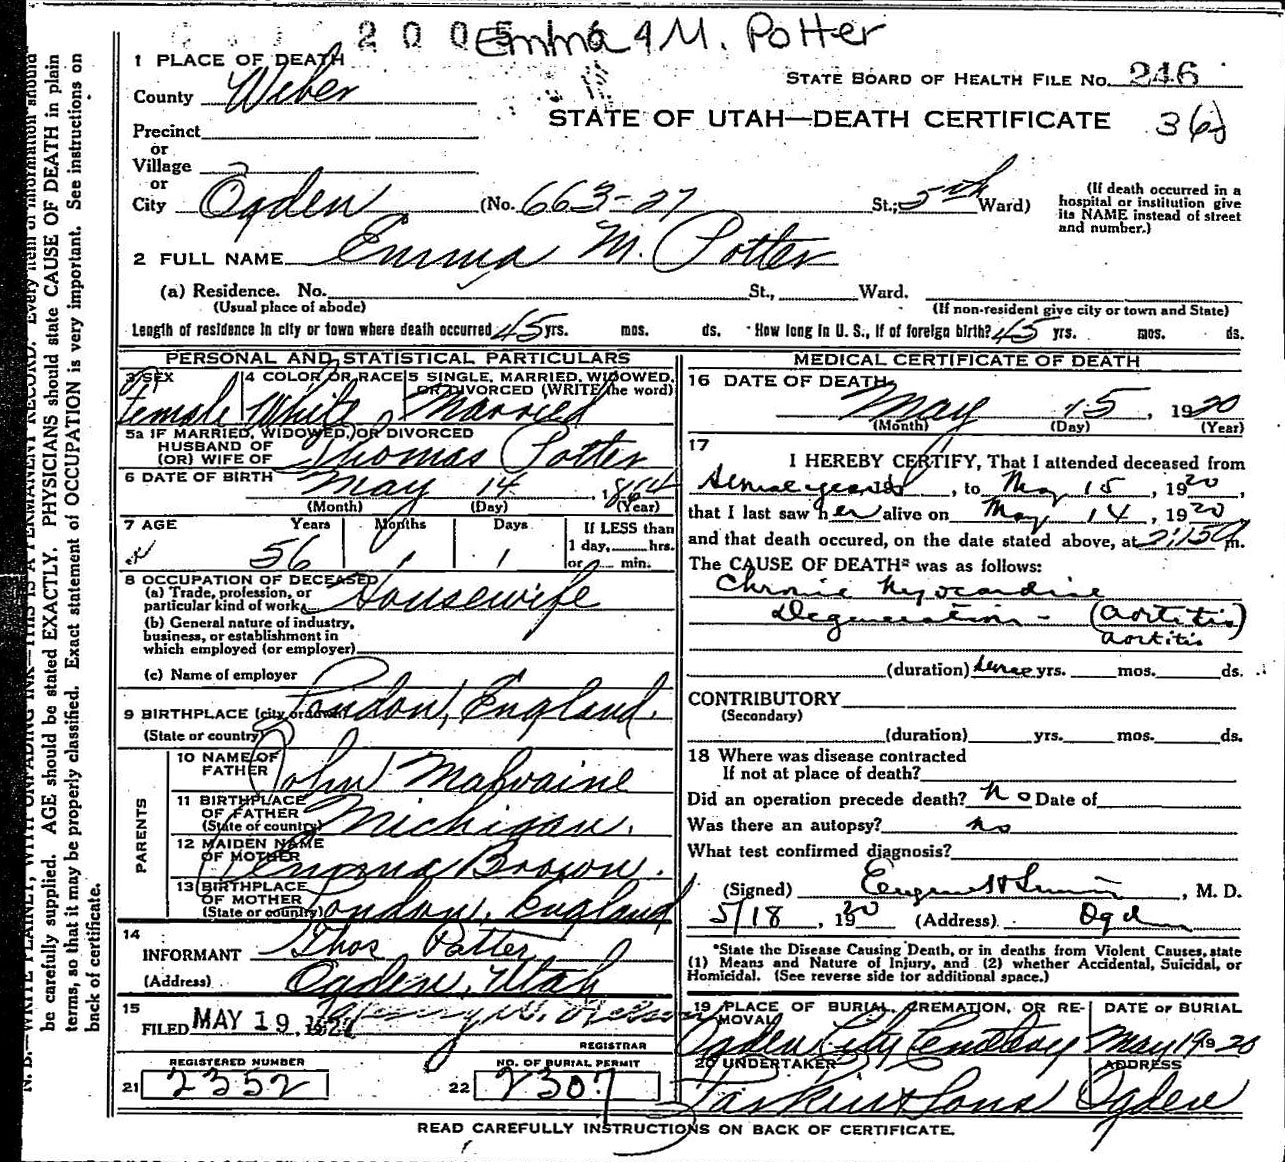 2005 Emma M. Potter
1 PLACE OF DEATH
STATE BOARD OF HEALTH FILE NO. 246
County Weber
STATE OF UTAH—DEATH CERTIFICATE
Precinct
or
Village
or
City Ogden (No. 663-27 St.; 5th Ward)
(If death occurred in a hospital or institution give its NAME instead of street and number.)
2 FULL NAME Emma M. Potter
(a) Residence. No. St., Ward.
(Usual place of abode) (If non-resident give city or town and State)
Length of residence in city or town where death occurred 45 yrs. mos. ds. How long in U. S., if of foreign birth? 45 yrs. mos. ds.
PERSONAL AND STATISTICAL PARTICULARS
3 SEX Female
4 COLOR OR RACE White
5 SINGLE, MARRIED, WIDOWED, OR DIVORCED (WRITE the word) Married
5a IF MARRIED, WIDOWED, OR DIVORCED
HUSBAND OF
(OR) WIFE OF Thomas Potter
6 DATE OF BIRTH May 14, 1864
(Month) (Day) (Year)
7 AGE Years Months Days If LESS than
56 1 1 day, hrs.
or min.
8 OCCUPATION OF DECEASED
(a) Trade, profession, or
particular kind of work Housewife
(b) General nature of industry,
business, or establishment in
which employed (or employer)
(c) Name of employer
9 BIRTHPLACE (city or town) London, England.
(State or country)
PARENTS
10 NAME OF FATHER John
11 BIRTHPLACE OF FATHER (State or country) Michigan.
12 MAIDEN NAME OF MOTHER Emma Brown.
13 BIRTHPLACE OF MOTHER (State or country) London, England
14
INFORMANT Thos Potter
(Address) Ogden, Utah
15
FILED MAY 19 1920
REGISTRAR
REGISTERED NUMBER NO. OF BURIAL PERMIT
21 2352 22 2307
MEDICAL CERTIFICATE OF DEATH
16 DATE OF DEATH
May 15, 1920
(Month) (Day) (Year)
17
I HEREBY CERTIFY, That I attended deceased from
Several years, to May 15, 1920,
that I last saw her alive on May 14, 1920
and that death occured, on the date stated above, at 2:15 m.
The CAUSE OF DEATH* was as follows:
Chronic Myocardial
Degeneration - (Aortitis)
Aortitis
(duration) yrs. mos. ds.
CONTRIBUTORY
(Secondary)
(duration) yrs. mos. ds.
18 Where was disease contracted
If not at place of death?
Did an operation precede death? no Date of
Was there an autopsy? no
What test confirmed diagnosis?
(Signed) Eugene H Smith, M. D.
5/18, 1920 (Address) Ogden
*State the Disease Causing Death, or in deaths from Violent Causes, state
(1) Means and Nature of Injury, and (2) whether Accidental, Suicidal, or
Homicidal. (See reverse side for additional space.)
19 PLACE OF BURIAL, CREMATION, OR REMOVAL DATE OF BURIAL
Ogden City May 19 1920
20 UNDERTAKER ADDRESS
Larkin & Sons Ogden
READ CAREFULLY INSTRUCTIONS ON BACK OF CERTIFICATE.
N. B.—WRITE PLAINLY, WITH UNFADING INK—THIS IS A PERMANENT RECORD. Every item of information should
be carefully supplied. AGE should be stated EXACTLY. PHYSICIANS should state CAUSE OF DEATH in plain
terms, so that it may be properly classified. Exact statement of OCCUPATION is very important. See instructions on
back of certificate.